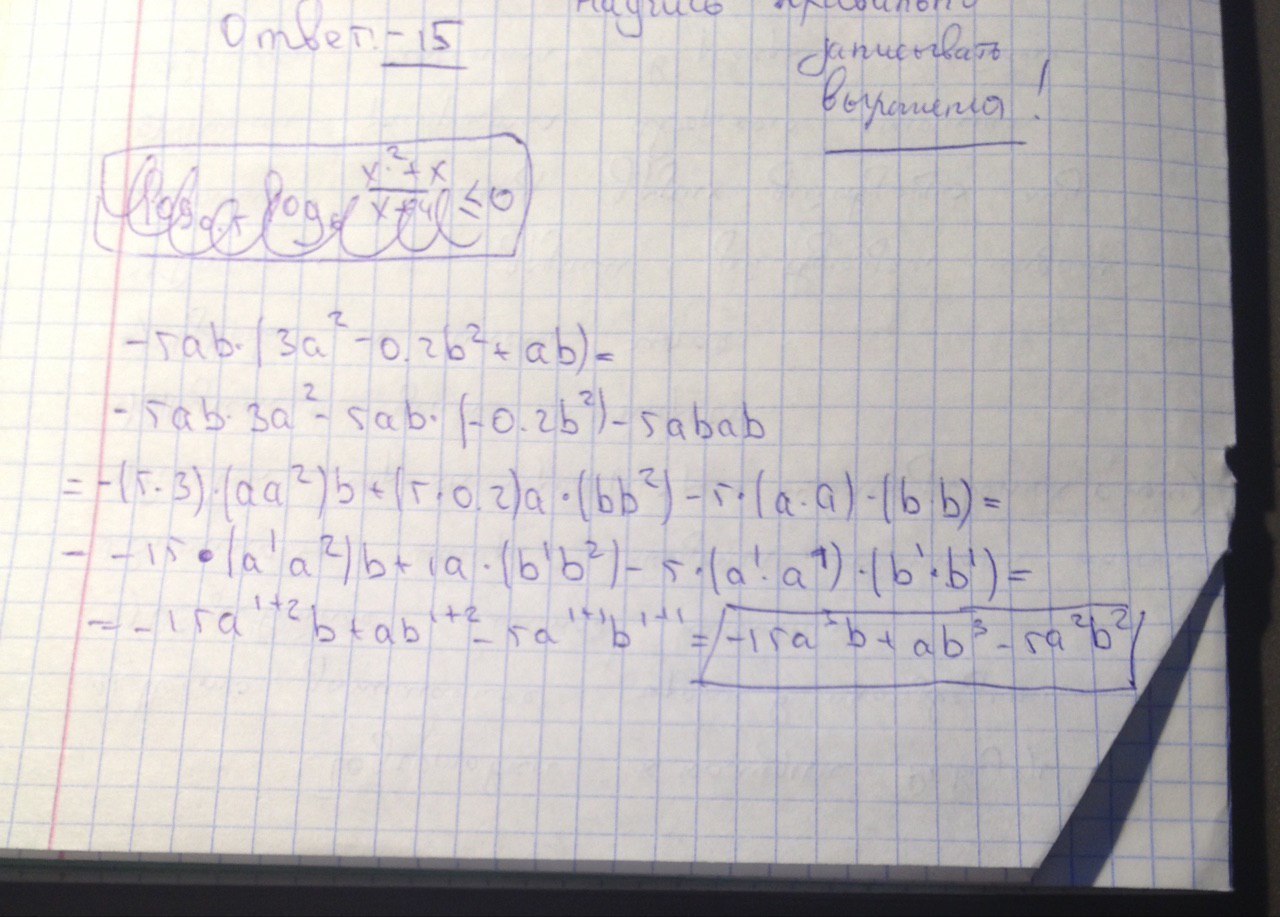 Ответ: -15
записывать
выражения!
-5ab·(3a²-0.2b²+ab)=
-5ab·3a²-5ab·(-0.2b²)-5abab
=-(5·3)·(aa²)b+(5·0.2)a·(bb²)-5·(a·a)·(b·b)=
--15·(a¹a²)b+1a·(b¹b²)-5·(a¹·a¹)·(b¹·b¹)=
=-15a¹⁺²b+ab¹⁺²-5a¹⁺¹b¹⁺¹=-15a³b+ab³-5a²b²